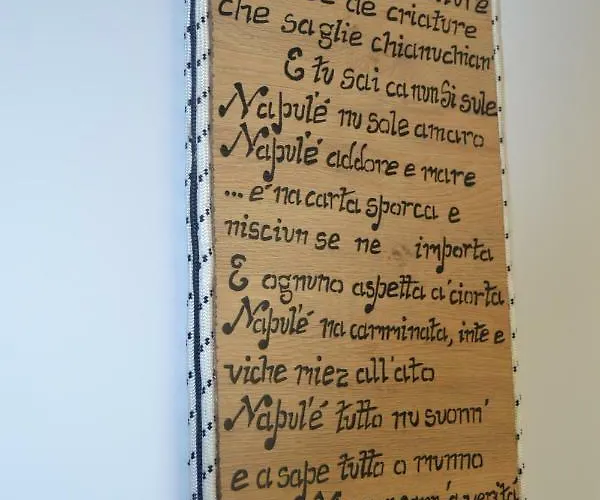 de criature
che saglie chianuchian'
E tu sai ca nun si sule
Napul'é nu sole amaro
Napul'é addore e mare
... e' na carta sporca e
nisciun se ne importa
E ognuno aspetta a' ciorta
Napul'é na camminata, inte e
viche miez all'ato
Napul'é tutto nu suonn'
e a sape tutto o munno